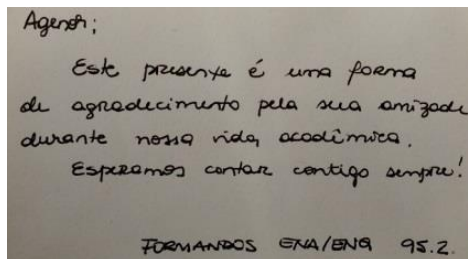 Agenor;
Este presente é uma forma
de agradecimento pela sua amizade
durante nossa vida acadêmica.
Esperamos contar contigo sempre!
FORMANDOS ENA/ENQ 95.2.